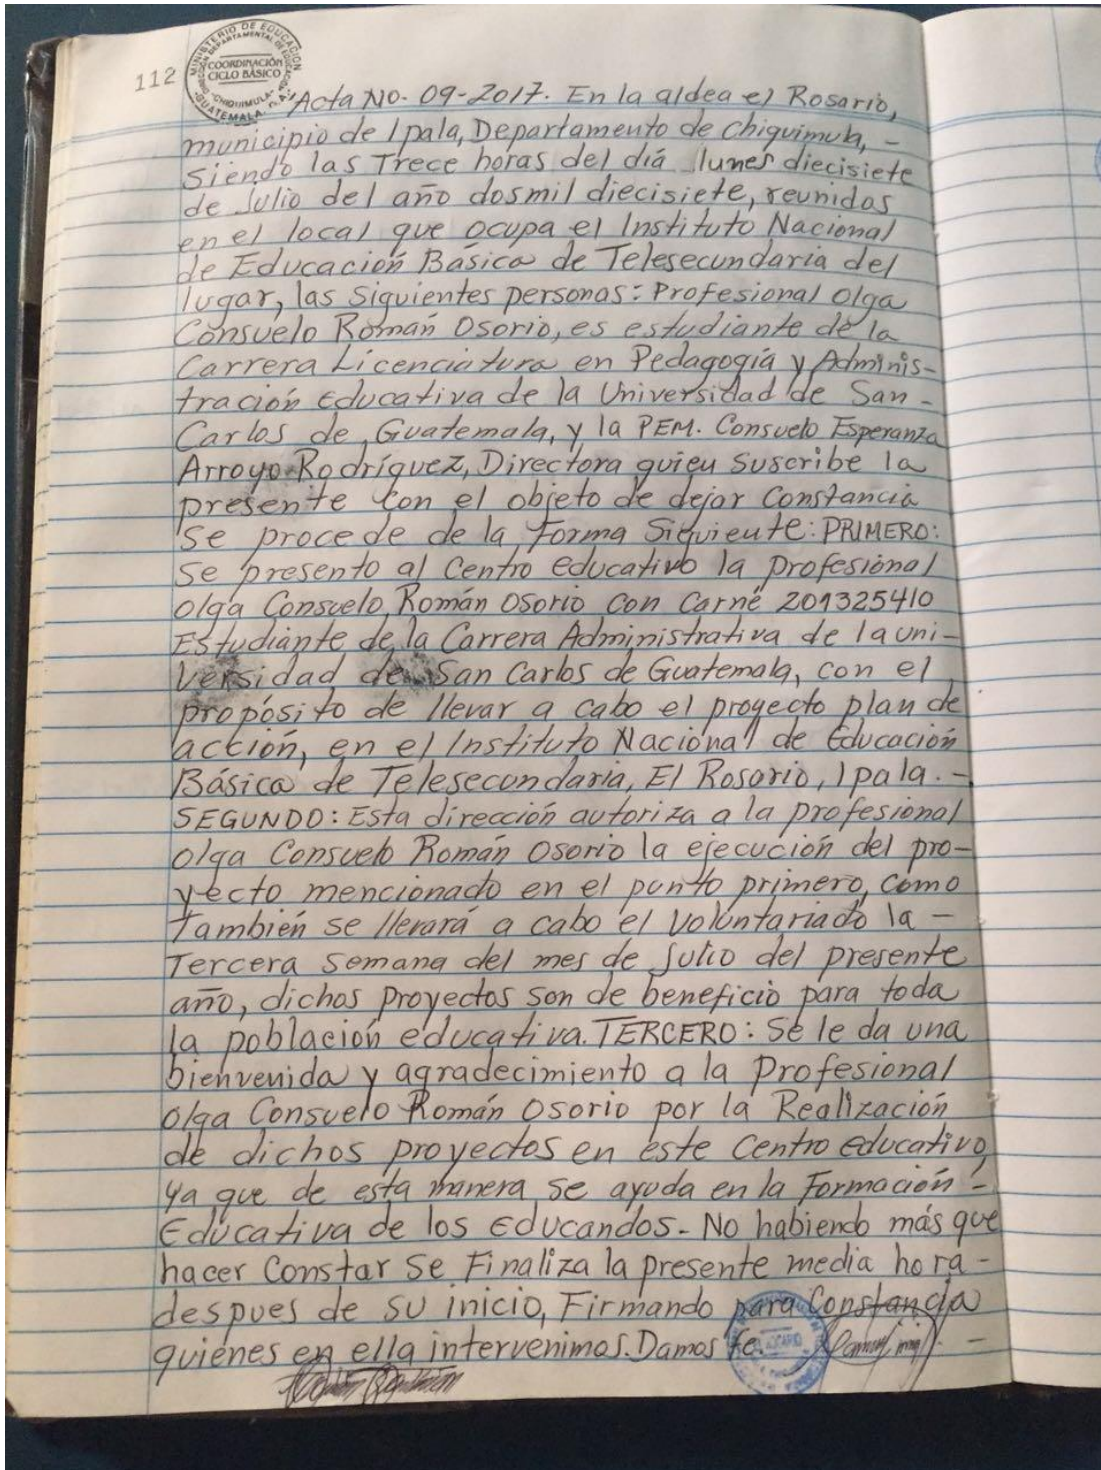 112
MINISTERIO DE EDUCACIÓN
DIRECCIÓN DEPARTAMENTAL DE EDUCACIÓN
COORDINACIÓN
CICLO BÁSICO
CHIQUIMULA
GUATEMALA, C. A.
Acta No. 09-2017. En la aldea el Rosario,
municipio de Ipala, Departamento de Chiquimula, -
Siendo las Trece horas del diá lunes diecisiete
de Julio del año dosmil diecisiete, reunidas
en el local que ocupa el Instituto Nacional
de Educación Básica de Telesecundaria del
lugar, las siguientes personas: Profesional Olga
Consuelo Román Osorio, es estudiante de la
Carrera Licenciatura en Pedagogía y Adminis-
tración Educativa de la Universidad de San -
Carlos de Guatemala, y la PEM. Consuelo Esperanza
Arroyo Rodríguez, Directora quien suscribe la
presente con el objeto de dejar Constancia
Se procede de la Forma Siguiente: PRIMERO:
Se presento al Centro educativo la profesional
Olga Consuelo Román Osorio con Carné 201325410
Estudiante de la Carrera Administrativa de la uni-
versidad de San Carlos de Guatemala, con el
propósito de llevar a cabo el proyecto plan de
acción, en el Instituto Nacional de Educación
Básica de Telesecundaria, El Rosario, Ipala. -
SEGUNDO: Esta dirección autoriza a la profesional
Olga Consuelo Román Osorio la ejecución del pro-
yecto mencionado en el punto primero, como
También se llevará a cabo el voluntariado la -
Tercera semana del mes de Julio del presente
año, dichos proyectos son de beneficio para toda
la población educativa. TERCERO: Se le da una
bienvenida y agradecimiento a la Profesional
Olga Consuelo Román Osorio por la Realización
de dichos proyectos en este Centro educativo,
ya que de esta manera se ayuda en la Formación -
Educativa de los Educandos - No habiendo más que
hacer Constar Se Finaliza la presente media hora -
despues de su inicio, Firmando para Constancia
quienes en ella intervenimos. Damos Fe. -